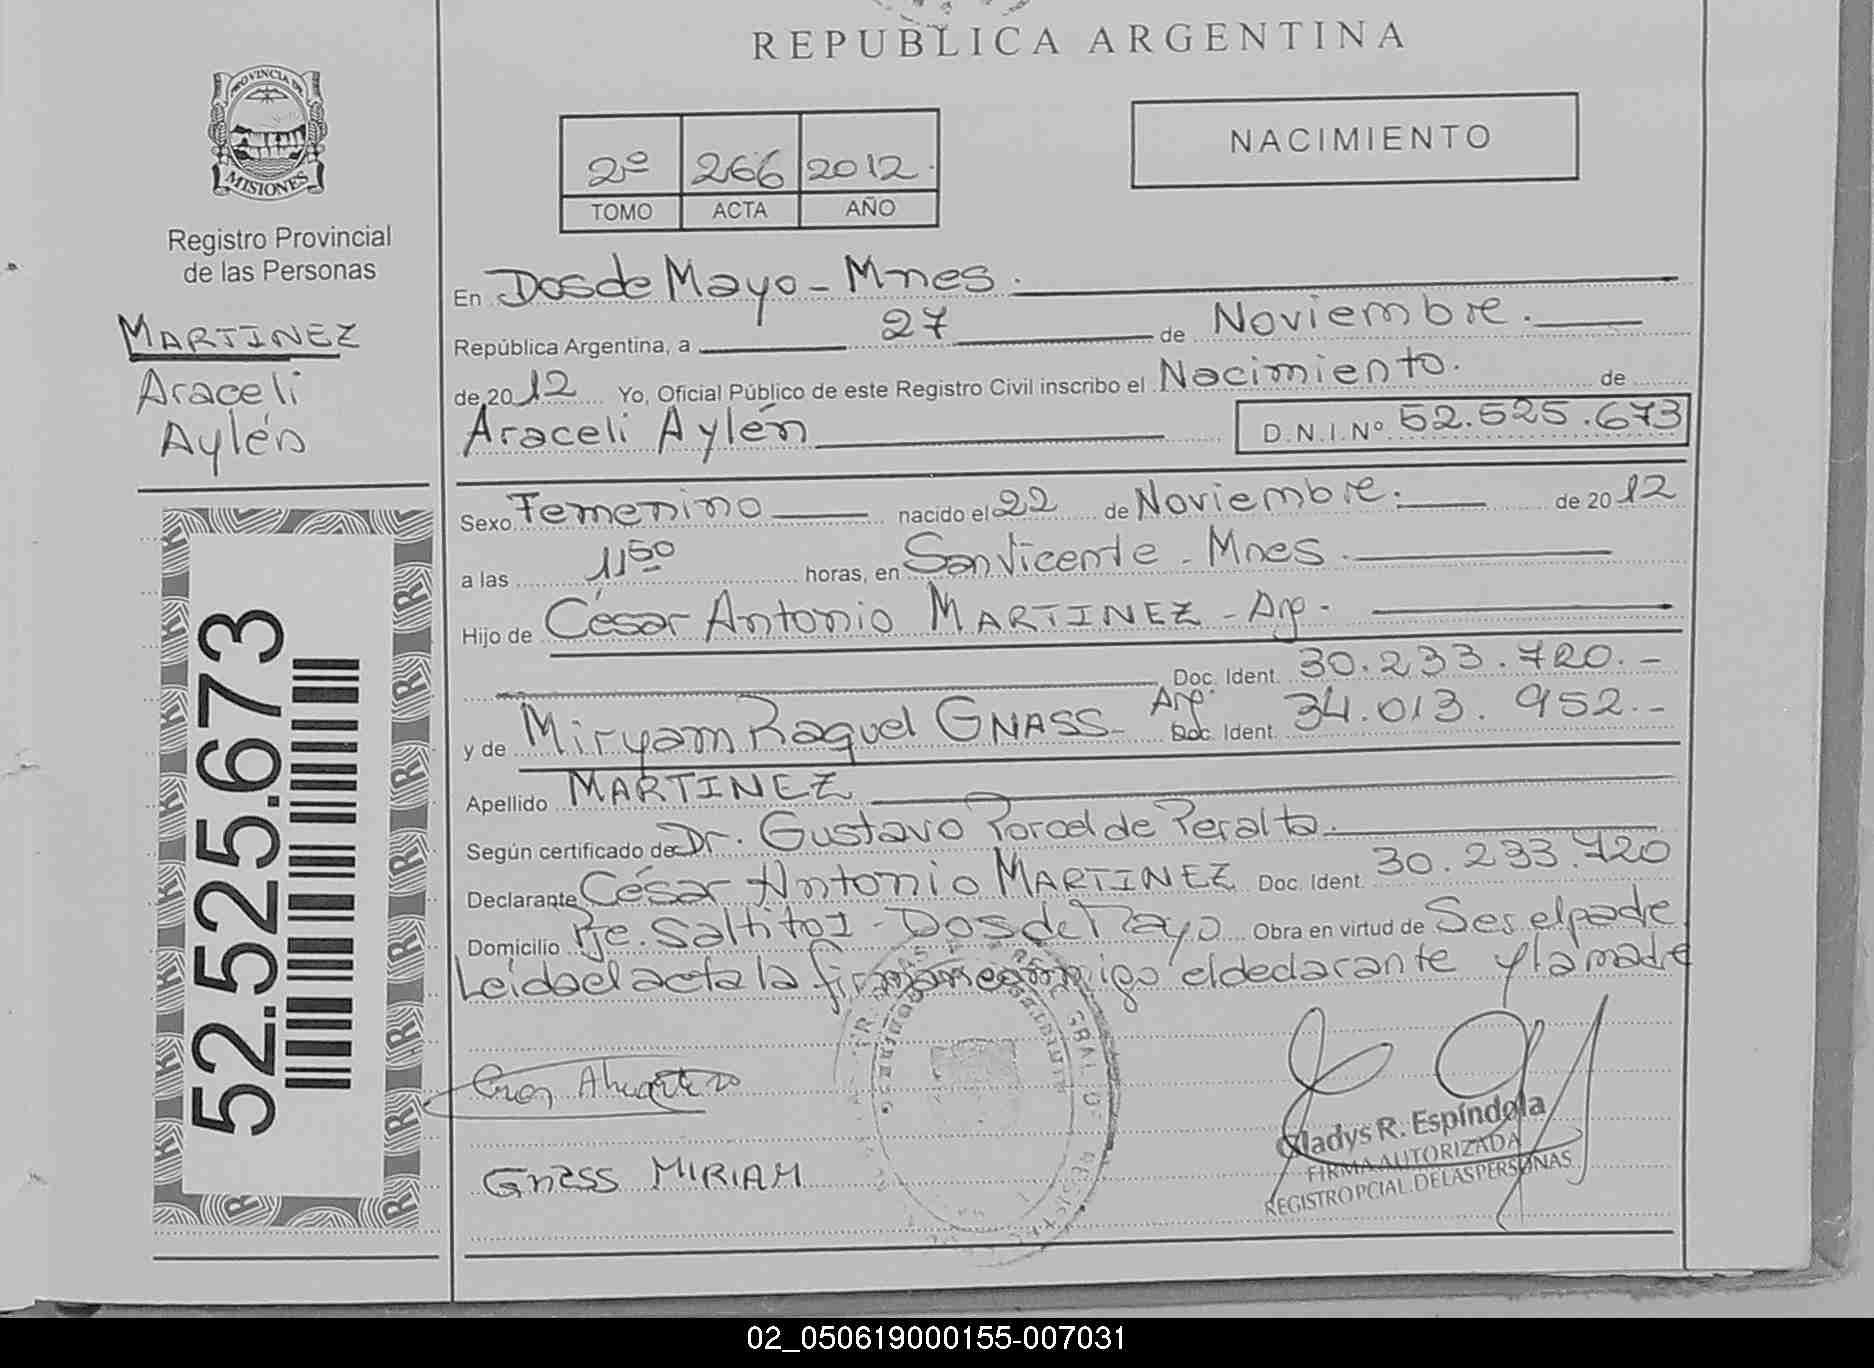 REPUBLICA ARGENTINA
PROVINCIA DE
MISIONES
Registro Provincial
de las Personas
MARTINEZ
Araceli
Aylén
52.525.673
2º 266 2012.
TOMO ACTA AÑO
NACIMIENTO
En Dos de Mayo - Mnes.
República Argentina, a 27 de Noviembre.
de 2012 Yo, Oficial Público de este Registro Civil inscribo el Nacimiento. de
Araceli Aylén D.N.I.Nº 52.525.673
Sexo Femenino nacido el 22 de Noviembre. de 2012
a las 11 50 horas, en San Vicente - Mnes.
Hijo de César Antonio MARTINEZ - Arg.
Doc. Ident. 30.233.720.-
y de Miryam Raquel GNASS - Arg. Doc. Ident. 34.013.952.-
Apellido MARTINEZ
Según certificado de Dr. Gustavo de Peralta.
Declarante César Antonio MARTINEZ Doc. Ident. 30.233.720
Domicilio Pje. Saltito I - Dos de Mayo Obra en virtud de Ser el padre
Leída el acta la firman conmigo el declarante y la madre
GNASS MIRIAM
Gladys R. Espíndola
FIRMA AUTORIZADA
REGISTRO PCIAL. DE LAS PERSONAS
02_050619000155-007031